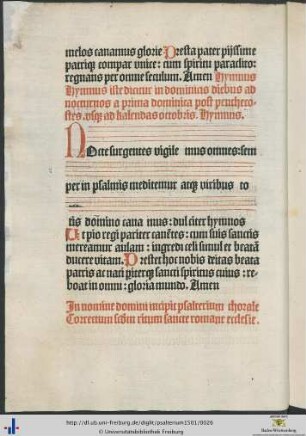 melos canamus glorie Presta pater pijssime
patriq; compar vnice: cum spiritu paraclito:
regnans per omne seculum. Amen Hymnus
Hymnus iste dicitur in dominicis diebus ad
nocturnos a prima dominica post penthecо-
stes vsq; ad kalendas octobris. Hymnus.
NOcte surgentes vigile mus omnes: sem
per in psalmis meditemur atq; viribus to
tis domino cana mus: dulciter hymnos
Ut pio regi pariter canẽtes: cum suis sanctis
mereamur aulam: ingredi celi simul et beatã
ducere vitam. Prestet hoc nobis deitas beata
patris ac nati pariterq; sancti spiritus cuius: re-
boat in omni: gloria mundo. Amen
In nomine domini incipit psalterium chorale
Correctum scdm ritum sancte romane ecclesie.
http://dl.ub.uni-freiburg.de/diglit/psalterium1501/0026
© Universitätsbibliothek Freiburg
Baden-Württemberg